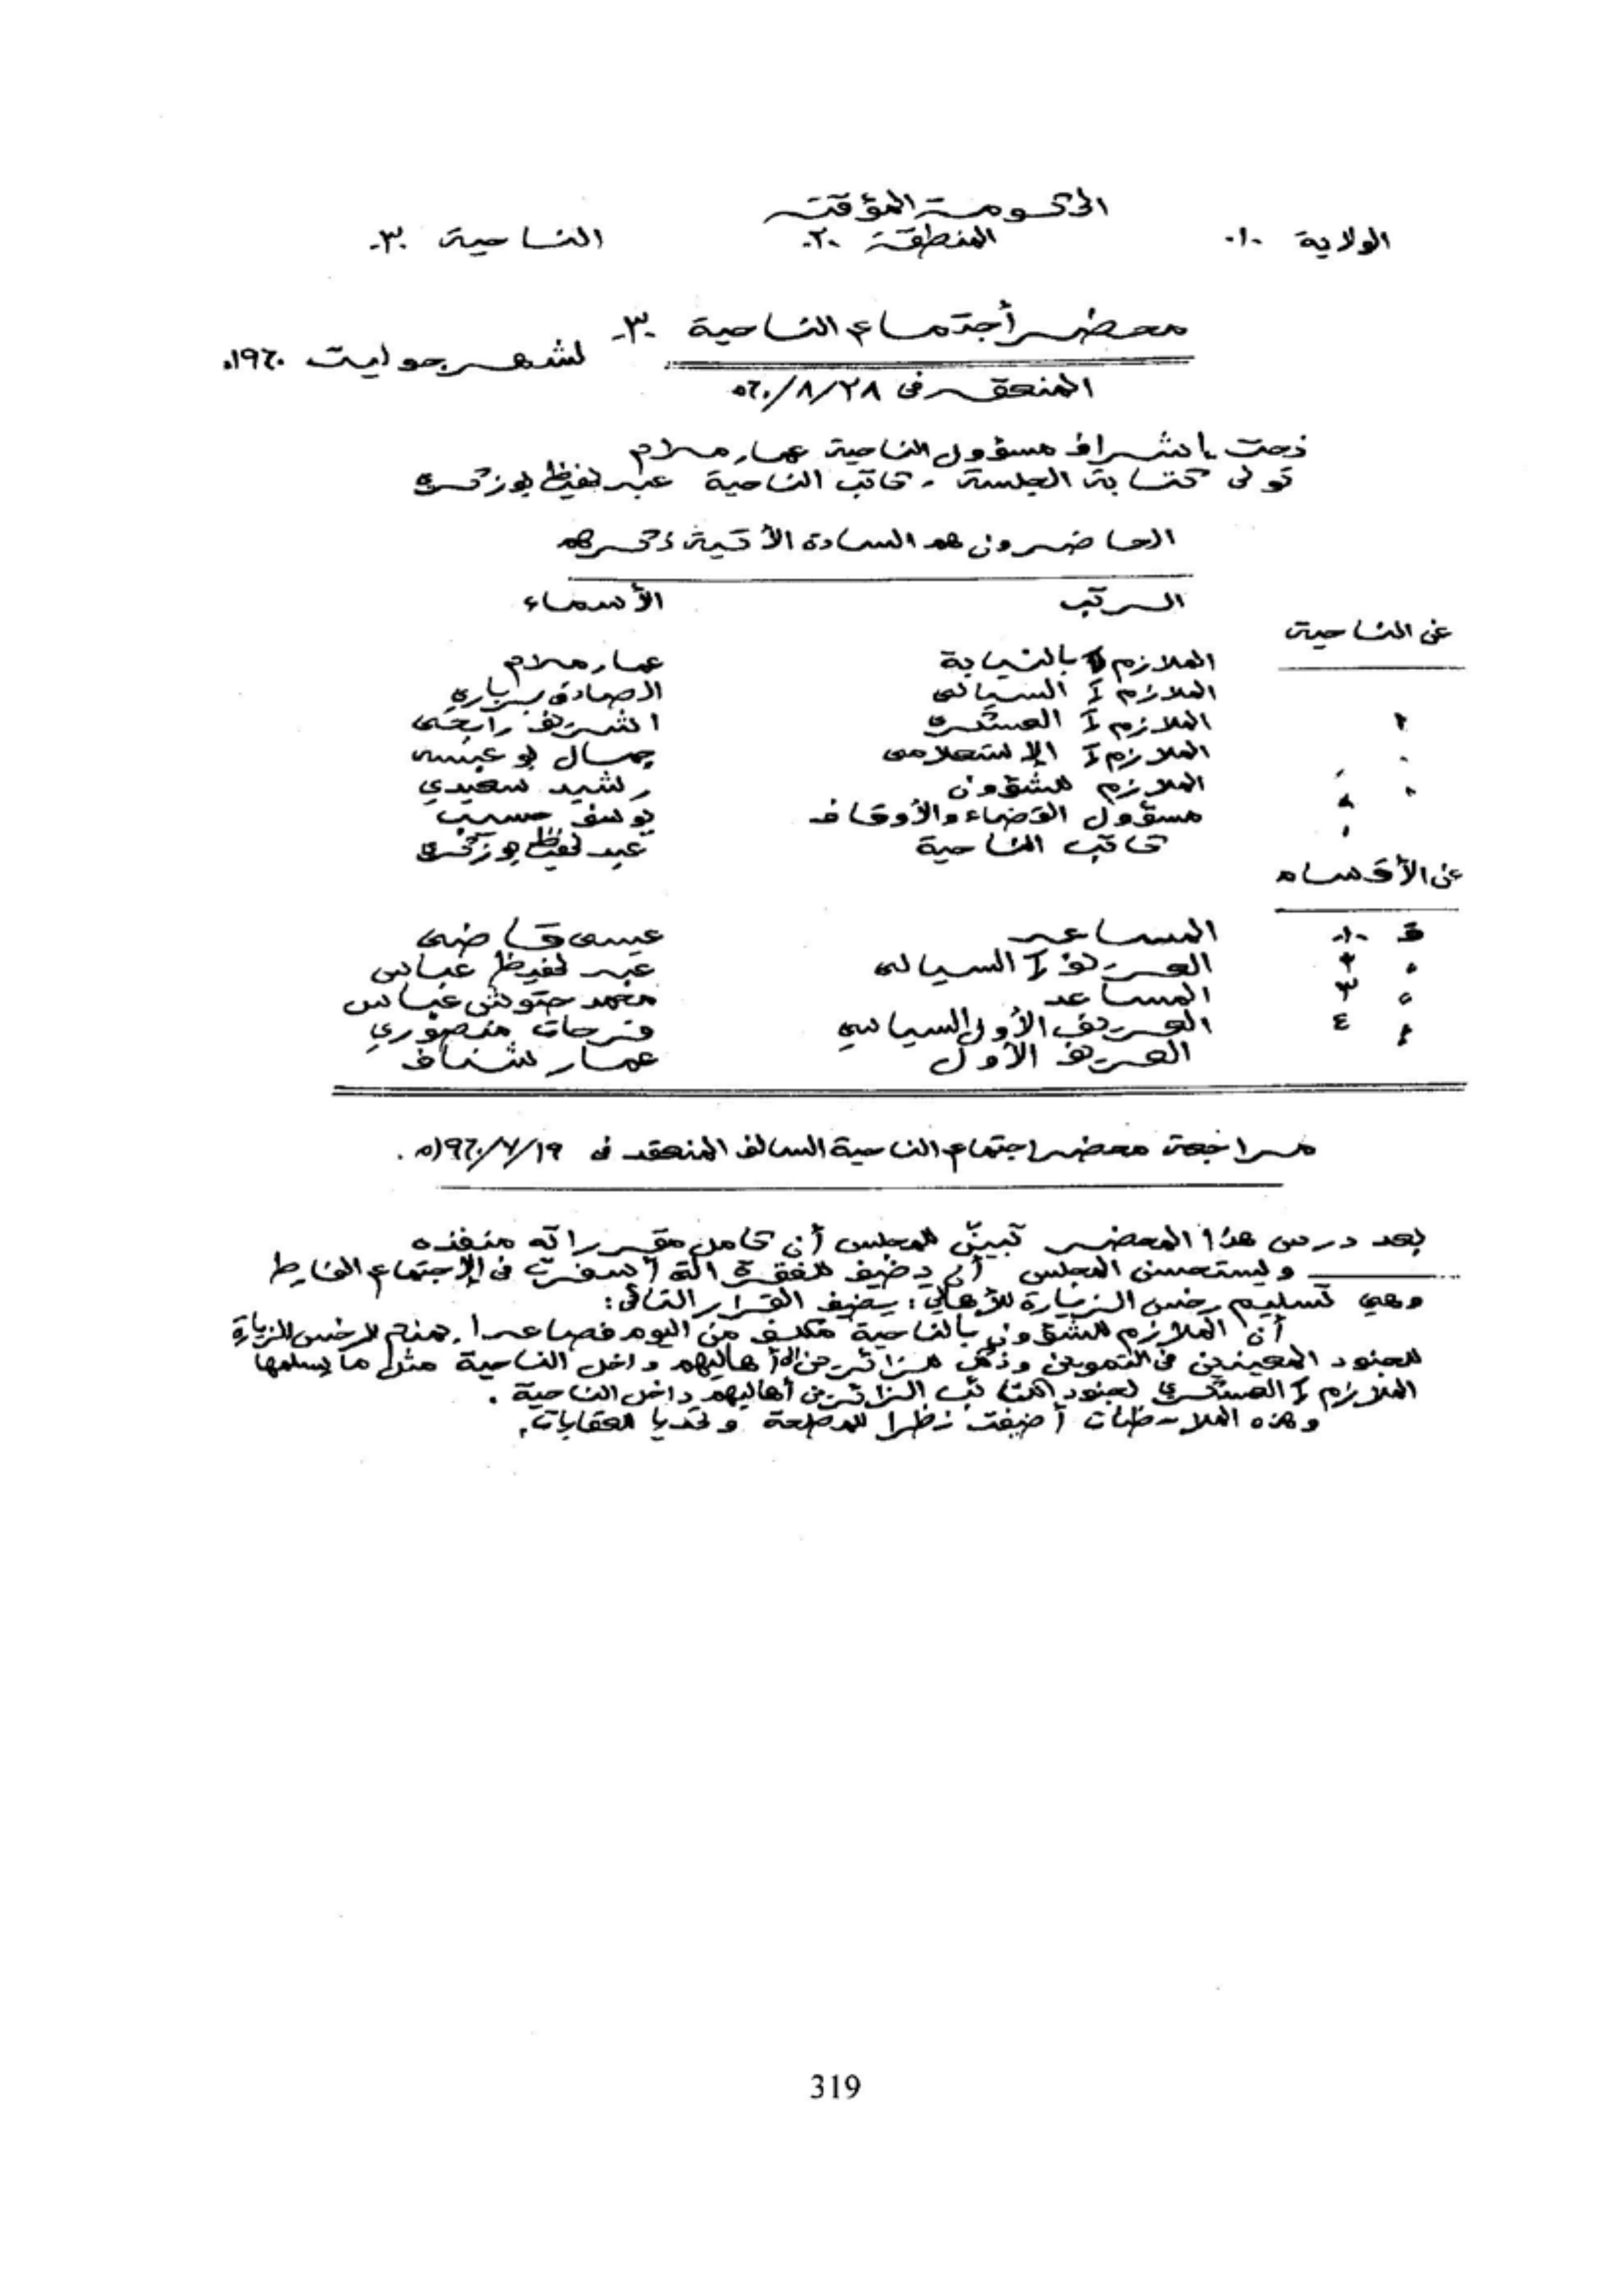 الحكومة المؤقتة
الولاية -١- المنطقة -٢- الناحية -٣-
محضر أجتماع الناحية -٣- لشهر جوليت ١٩٦٠م
المنعقد فى ٦٠/٨/٢٨م
تحت اشراف مسؤول الناحية عمار ملاح
تولى كتابة الجلسة - كاتب الناحية عبد لحفيظ بوزكري
الحاضرون هم السادة الأتية ذكرهم
الرتب الأسماء
عن الناحية
الملازم بالنيابة عمار ملاح
الملازم I السياسى الصادق بزياري
الملازم I العسكري الشريف رابحى
الملازم I الإستعلامى جمال بو عبسه
الملازم للشؤون رشيد سعيدي
مسؤول القضاء والأوقاف يوسف حسيب
كاتب الناحية عبد لحفيظ بوزكري
عن الأقسام
ق -١- المساعد عيسى قاضى
" ٢ العريف I السياسى عبد لحفيظ عباس
" ٣ المساعد محمد حتوش عباس
" ٤ العريف الأول السياسي فرحات منصوري
العريف الأول عمار شناف
مراجعة محضر اجتماع الناحية السالف المنعقد فى ١٩٦٠/٧/١٩م.
بعد درس هذا المحضر تبين للمجلس أن كامل مقرراته منفذه
ويستحسن المجلس أن يضيف للفقرة التى أسفرت فى الإجتماع الفارط
وهي تسليم رخص الزيارة للأهالي: يضيف القرار التالى:
أن الملازم للشؤون بالناحية مكلف من اليوم فصاعدا. بمنح لرخص الزيارة
للجنود المعينين فى التموين وذلك للزائرين أهاليهم داخل الناحية مثل ما يسلمها
الملازم I العسكري لجنود الكتائب الزائرين أهاليهم داخل الناحية.
وهذه الملاحظات أضيفت نظرا للمصلحة وتحديا للعقابات.
319